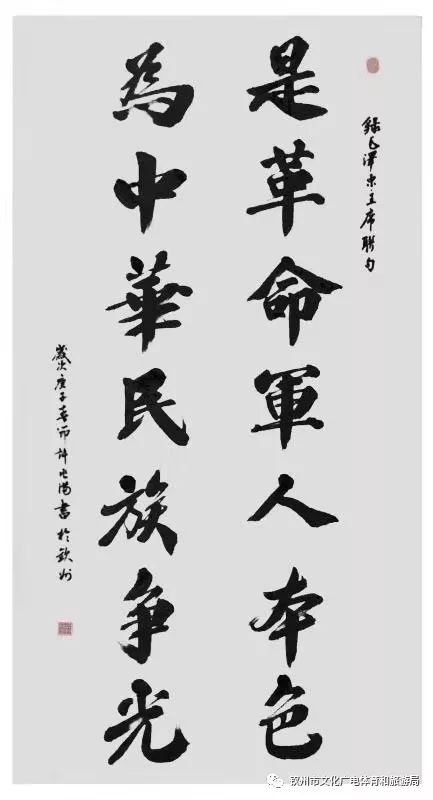 錄毛澤东主席聯句
是革命軍人本色
為中華民族争光
歲次庚子春節許書於欽州
钦州市文化广电体育和旅游局